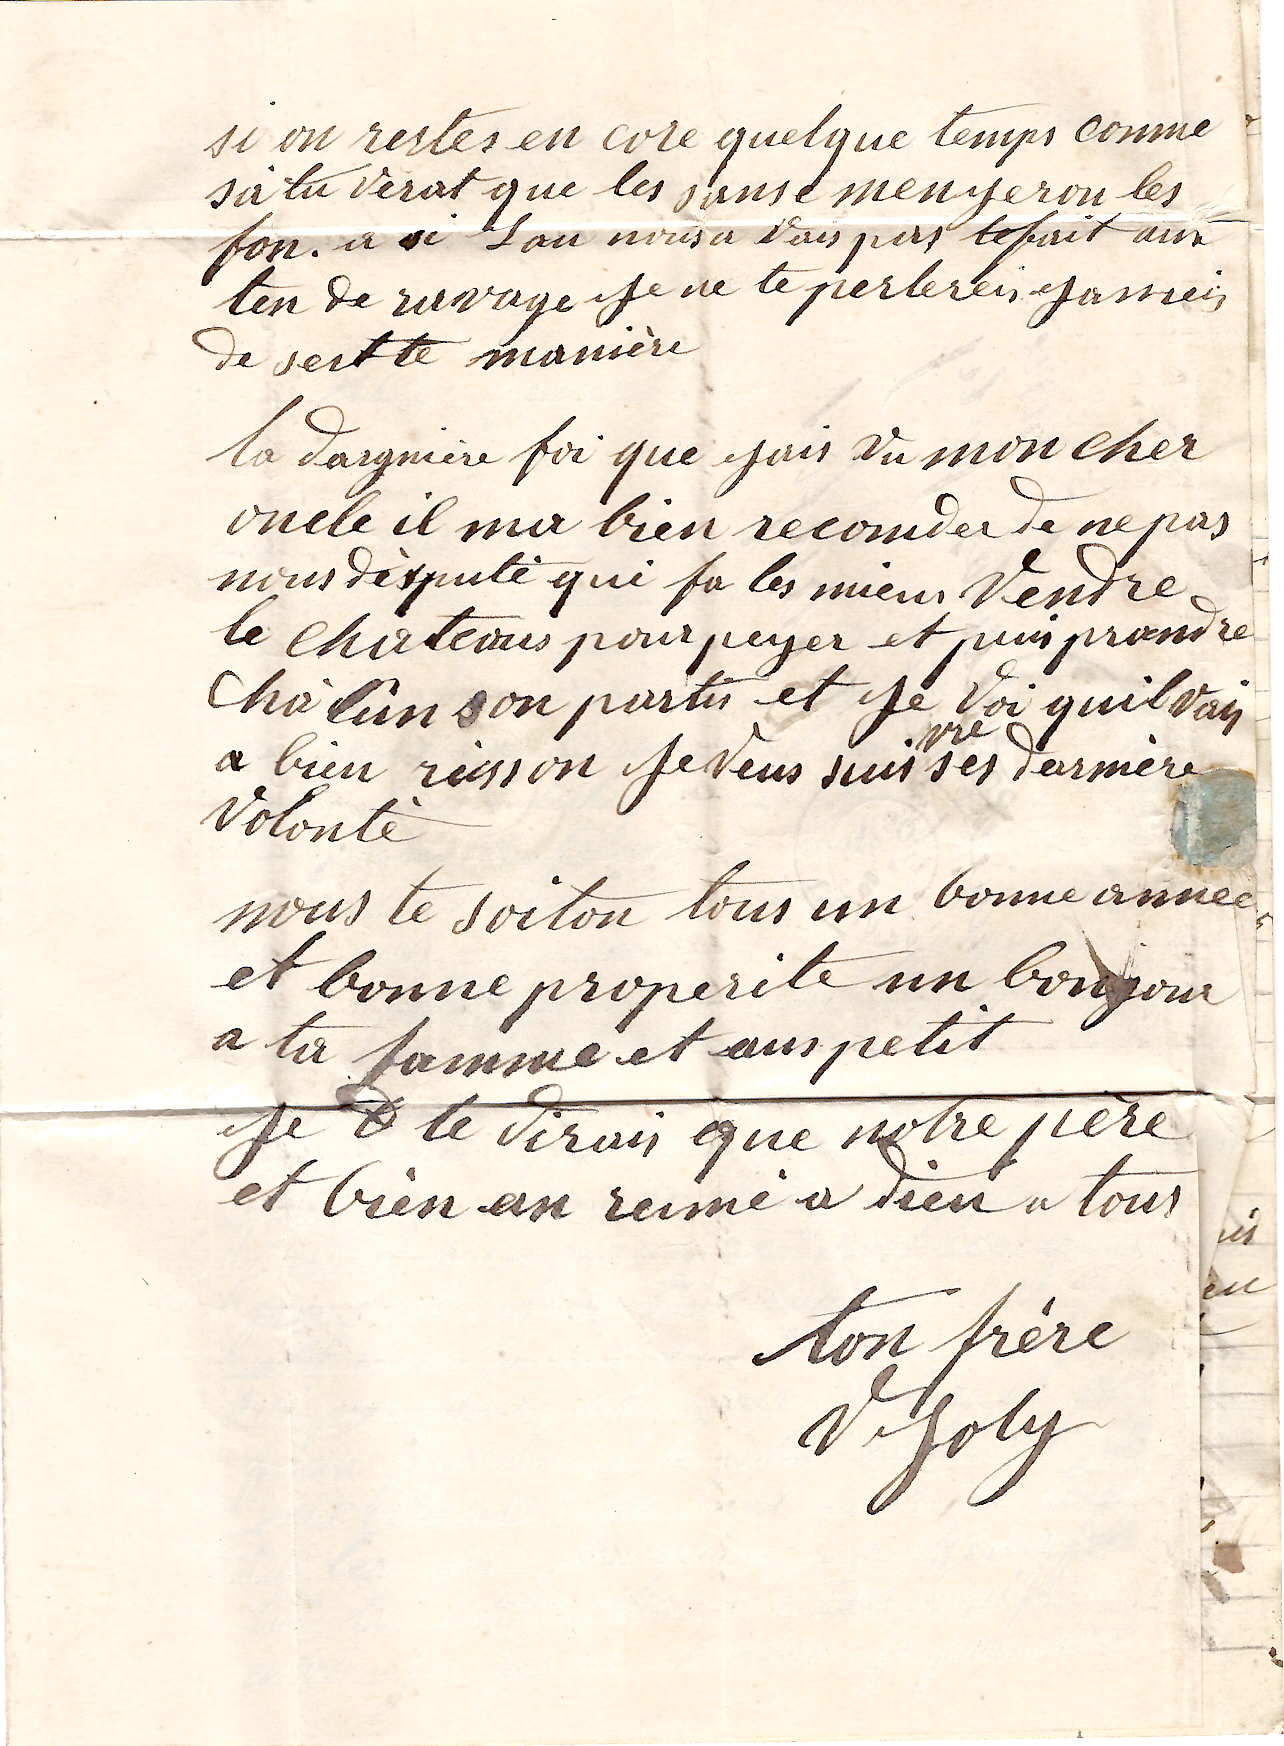 si on restes en core quelque temps comme
sà tu verat que les sanse menjeron les
fon. a si Lau nous a vais pas fait aux
ten de ravage je ne te perlereis jameis
de sertte manière
la dargnière foi que jais vu mon cher
oncle il ma bien recomder de ne pas
nous dèspute qui fa les mieux Vendre
le chateaus pour peyer et puis prandre
chàcun son partis et je voi quil vais
a bien reisson je veus suisvre ses darnière
volontè
nous te soiton tous un bonne annee
et bonne properite un bonjour
a ta famme et aus petit
je te dirais que notre père
et bièn an reumè a dieu a tous
ton frère
V Joly
is
en